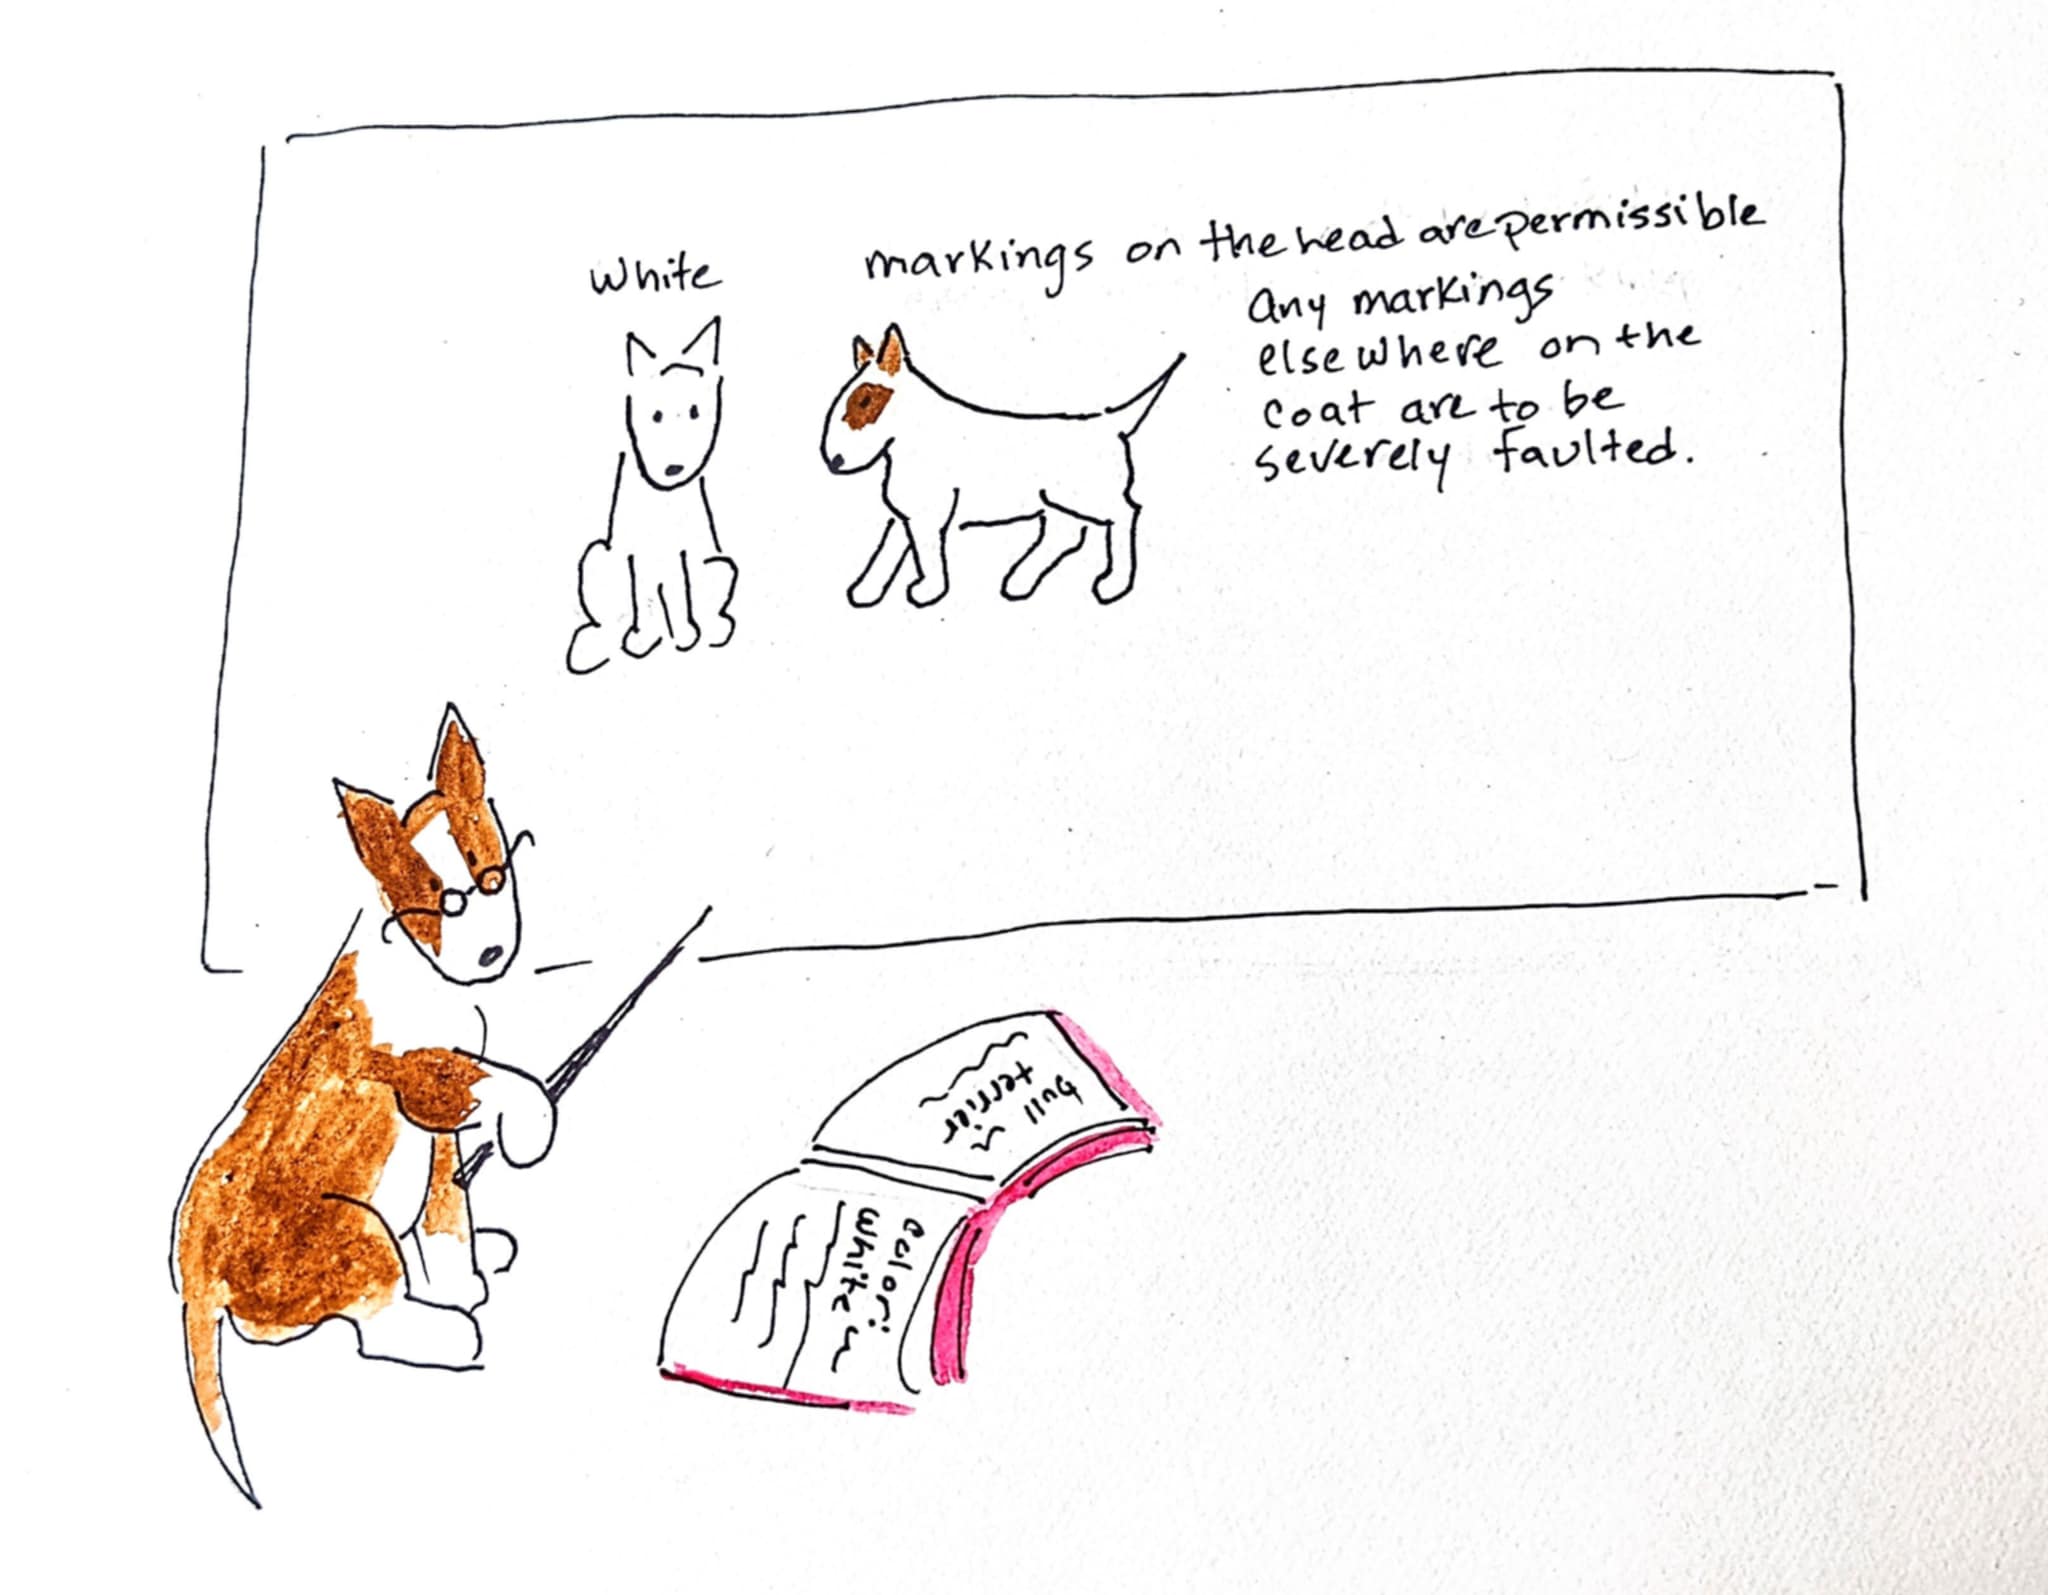 white
markings on the head are permissible
Any markings
elsewhere on the
coat are to be
severely faulted.
bull
terrier
color:
white